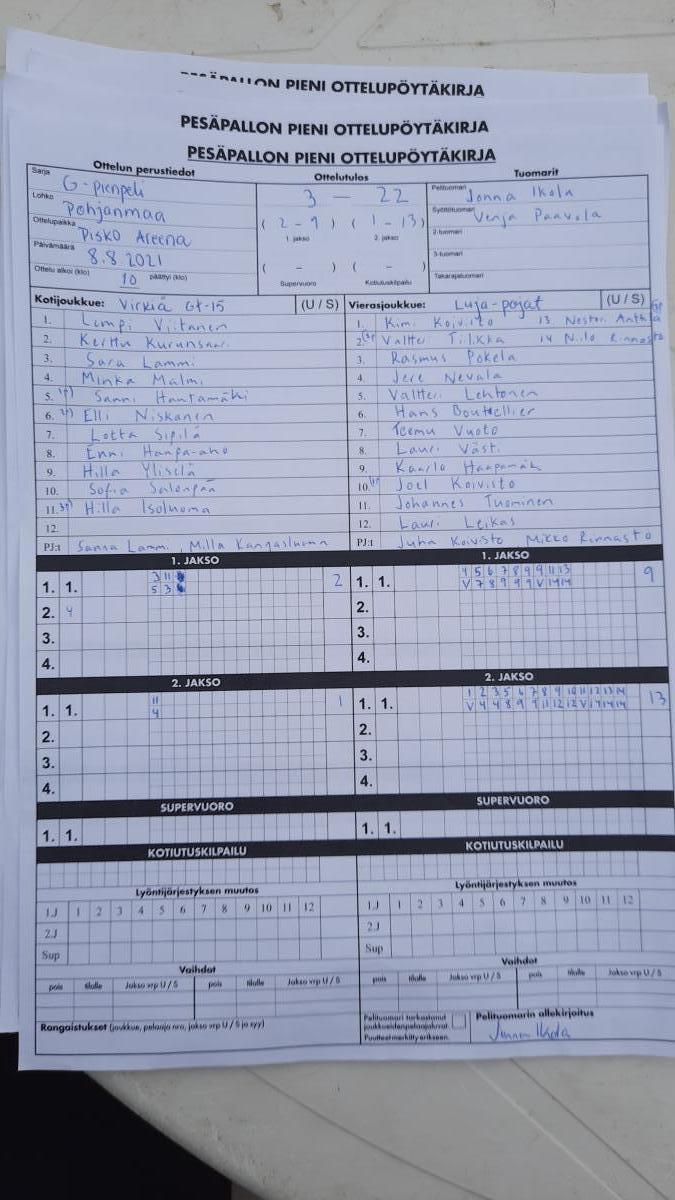 PESÄPALLON PIENI OTTELUPÖYTÄKIRJA
PESÄPALLON PIENI OTTELUPÖYTÄKIRJA
PESÄPALLON PIENI OTTELUPÖYTÄKIRJA
Ottelun perustiedot Ottelutulos Tuomarit
Sarja G-pienpeli 3 – 22 Pelituomari Jonna Ikola
Lohko Pohjanmaa (2 – 9) (1 – 13) Syöttötuomari Venja Paavola
Ottelupaikka Pisko Areena 1. jakso 2. jakso 2-tuomari
Päivämäärä 8.8.2021 ( – ) ( – ) 3-tuomari
Ottelu alkoi (klo) 10 päättyi (klo) Supervuoro Kotiutuskilpailu Takarajatuomari
Kotijoukkue: Virkiä G1-15 (U / S) Vierasjoukkue: Luja-pojat (U / S)
1. Lumpi Viitanen 1. Kimi Koivisto 13. Nestori Anttila
2. Kerttu Kurunsaari 2. Valtteri Tilkka 14 Niilo Rinnasto
3. Sara Lammi 3. Rasmus Pokela
4. Minka Malmi 4. Jere Nevala
5. Sanni Hantamäki 5. Valtteri Lehtonen
6. Elli Niskanen 6. Hans Boutellier
7. Lotta Sipilä 7. Teemu Vuoto
8. Enni Haapa-aho 8. Lauri Västi
9. Hilla Yliselä 9. Kaarlo Haapamäki
10. Sofia Salonpää 10. Joel Koivisto
11. Hilla Isoluoma 11. Johannes Tuominen
12. 12. Lauri Leikas
PJ:t Sanna Lammi, Milla Kangasluoma PJ:t Juha Koivisto Mikko Rinnasto
1. JAKSO 1. JAKSO
3 11 4 5 6 7 8 9 9 11 13
1. 1. 5 3 2 1. 1. V 7 8 9 9 9 V 14 14 9
2. 4 2.
3. 3.
4. 4.
2. JAKSO 2. JAKSO
11 1 2 3 5 6 7 8 9 10 11 12 13 14
1. 1. 4 1 1. 1. V 4 4 8 9 9 11 12 12 V 14 14 14 13
2. 2.
3. 3.
4. 4.
SUPERVUORO SUPERVUORO
1. 1. 1. 1.
KOTIUTUSKILPAILU KOTIUTUSKILPAILU
Lyöntijärjestyksen muutos Lyöntijärjestyksen muutos
1.J 1 2 3 4 5 6 7 8 9 10 11 12 1.J 1 2 3 4 5 6 7 8 9 10 11 12
2.J 2.J
Sup Sup
Vaihdot Vaihdot
pois tilalle Jakso vrp U / S pois tilalle Jakso vrp U / S pois tilalle Jakso vrp U / S pois tilalle Jakso vrp U / S
Rangaistukset (joukkue, pelaaja nro, jakso vrp U / S ja syy) Pelituomari tarkastanut joukkueiden pelaajaluvat. Puutteet merkitty erikseen. Pelituomarin allekirjoitus
Jonna Ikola